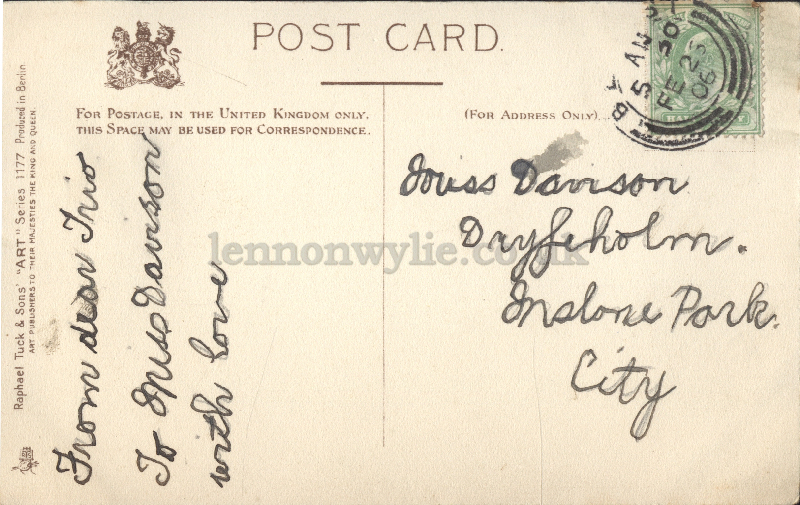 POST CARD.
FOR POSTAGE, IN THE UNITED KINGDOM ONLY.
THIS SPACE MAY BE USED FOR CORRESPONDENCE.
(FOR ADDRESS ONLY)
Raphael Tuck & Sons' "ART" Series 1177 Produced in Berlin
ART PUBLISHERS TO THEIR MAJESTIES THE KING AND QUEEN.
From dear Trio
To Miss Davison
with love
Miss Davison
Dryfeholm.
Malone Park.
City
FE 25
06
lennonwylie.co.uk